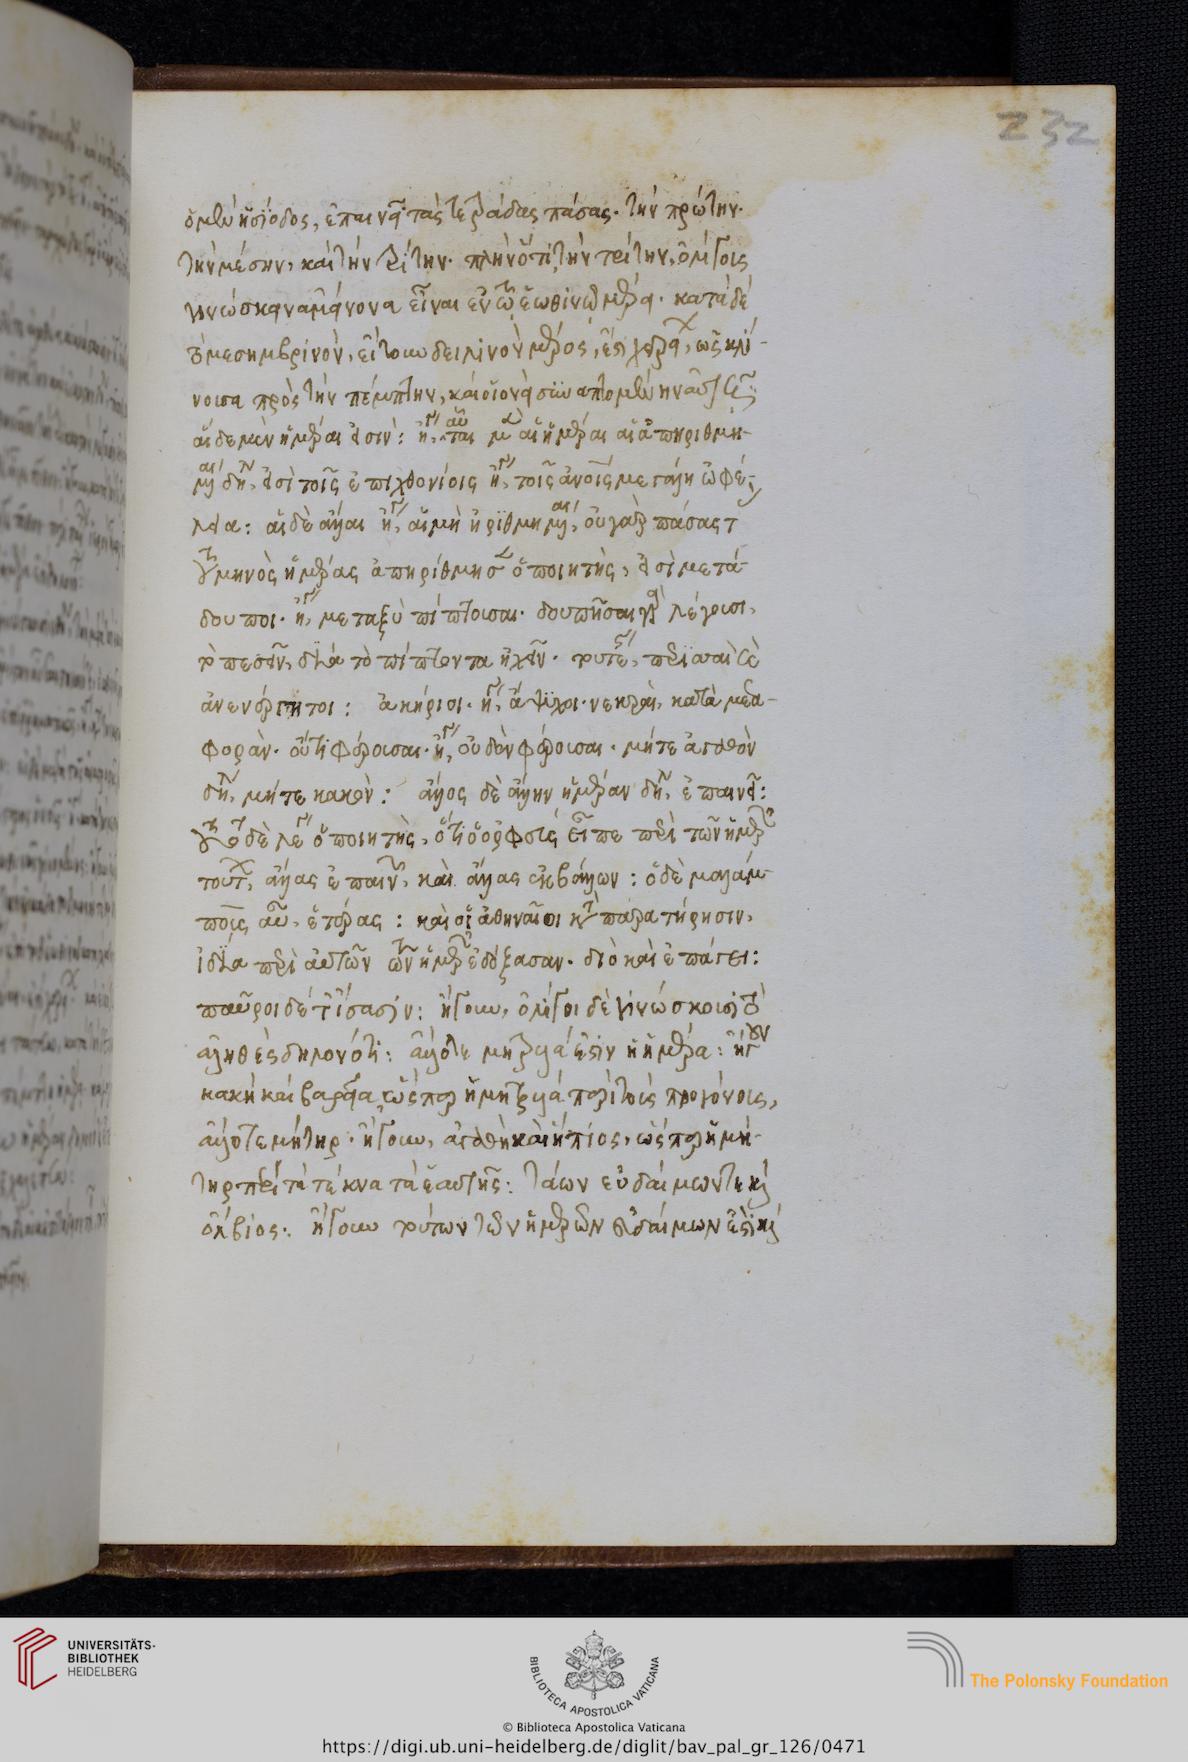 232
ὁ μὲν ἡσίοδος, ἐπαινεῖ τὰς τετράδας πάσας· τὴν πρώτην·
τὴν μέσην, καὶ τὴν τρίτην· πλὴν ὅτι τὴν τρίτην, ὀλίγοις
γινώσκειν ἀμείνονα εἶναι ἐν τῶ ἑωθινῶ μέρει· κατὰ δὲ
τὸ μεσημβρινὸν, εἴτουν δειλινὸν μέρος, ὡς κλί-
νουσα πρὸς τὴν πέμπτην, καὶ
αἵδε μὲν ἡμέραι εἰσὶν: ἤγουν αὗται μὲν αἱ ἡμέραι αἱ ἀπηριθμη-
μέναι δηλονότι, εἰσὶ τοῖς ἐπιχθονίοις ἤγουν, τοῖς ἀνοις μεγάλη ὠφέ-
λεια: αἱ δὲ ἄλλαι ἤγουν, αἱ μὴ ἠριθμημέναι, οὐ γὰρ πάσας τ
τοῦ μηνὸς ἡμέρας ἀπηρίθμησεν ὁ ποιητὴς, εἰσὶ μετά-
δουποι· ἤγουν, μεταξὺ πίπτουσαι· δουπῆσαι γὰρ λέγουσι,
τὸ πεσεῖν, διὰ τὸ πίπτοντα ἠχεῖν· τουτέστι,
ἀνενέργητοι: ἀκήριοι· ἤγουν, ἄψυχοι· νεκραὶ, κατὰ μετα-
φορὰν· οὔτι φέρουσαι· ἤγουν, οὐδὲν φέρουσαι· μήτε ἀγαθὸν
δηλονότι, μήτε κακὸν: ἄλλος δὲ ἄλλην ἡμέραν δηλονότι, ἐπαινεῖ:
τοῦτο δὲ λέγει ὁ ποιητὴς, ὅτι ὁ ὀρφεὺς εἶπε περὶ τῶν ἡμερῶν
τούτων, ἄλλας ἐπαινῶν, καὶ ἄλλας ἐκβάλλων: ὁ δὲ μελάμ-
πους αὖ, ἑτέρας: καὶ οἱ ἀθηναῖοι κατὰ παρατήρησιν,
ἰδία περὶ αὐτῶν τῶν ἡμερῶν ἐδόξασαν· διὸ καὶ ἐπάγει:
παῦροι δέ τ' ἴσασιν: ἤγουν, ὀλίγοι δὲ γινώσκουσι τὸ
ἀληθὲς δηλονότι: ἄλλοτε μητρυιά ἐστιν ἡ ἡμέρα: ἤγουν
κακὴ καὶ βαρεῖα, ὥσπερ ἡ μητρυιὰ τοῖς προγόνοις,
ἄλλοτε μήτηρ· ἤγουν, ἀγαθὴ καὶ ἤπιος, ὥσπερ ἡ μή-
τηρ περὶ τὰ τέκνα τὰ ἑαυτῆς: τάων εὐδαίμων τε καὶ
ὄλβιος: ἤγουν τούτων τῶν ἡμερῶν εὐδαίμων ἐστὶ καὶ
UNIVERSITÄTS-
BIBLIOTHEK
HEIDELBERG
BIBLIOTECA APOSTOLICA VATICANA
The Polonsky Foundation
© Biblioteca Apostolica Vaticana
https://digi.ub.uni-heidelberg.de/diglit/bav_pal_gr_126/0471